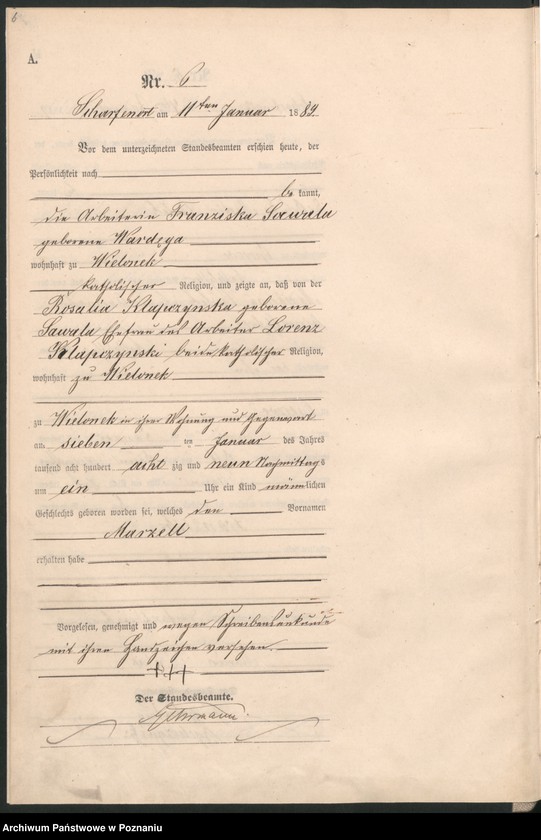 6
A.
Nr. 6
Scharfenort am 11ten Januar 1889.
Vor dem unterzeichneten Standesbeamten erschien heute, der
Persönlichkeit nach
be kannt,
die Arbeiterin Franziska Sawala
geborene Wardęga
wohnhaft zu Wielonek
katholischer Religion, und zeigte an, daß von der
Rosalia Kłapczynska geborene
Sawala, Ehefrau des Arbeiter Lorenz
Kłapczynski beide katholischer Religion,
wohnhaft zu Wielonek
zu Wielonek in ihrer Wohnung und Gegenwart
am sieben ten Januar des Jahres
tausend acht hundert acht zig und neun Nachmittags
um ein Uhr ein Kind männlichen
Geschlechts geboren worden sei, welches den Vornamen
Marzell
erhalten habe
Vorgelesen, genehmigt und wegen Schreibensunkunde
mit ihren Handzeichen versehen.
+++
Der Standesbeamte.
Archiwum Państwowe w Poznaniu